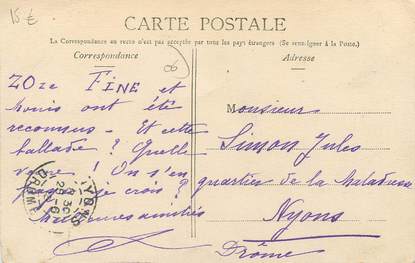 15 €
CARTE POSTALE
La Correspondance au recto n'est pas acceptée par tous les pays étrangers (Se renseigner à la Poste.)
Correspondance
Adresse
06
Fine et
ont été
reconnus - Et cette
ballade ? Quelle
! On s'en
je crois ?
amitiés
Monsieur
Simon Jules
quartier de la Maladrerie
Nyons
Drôme
NYONS
DRÔME